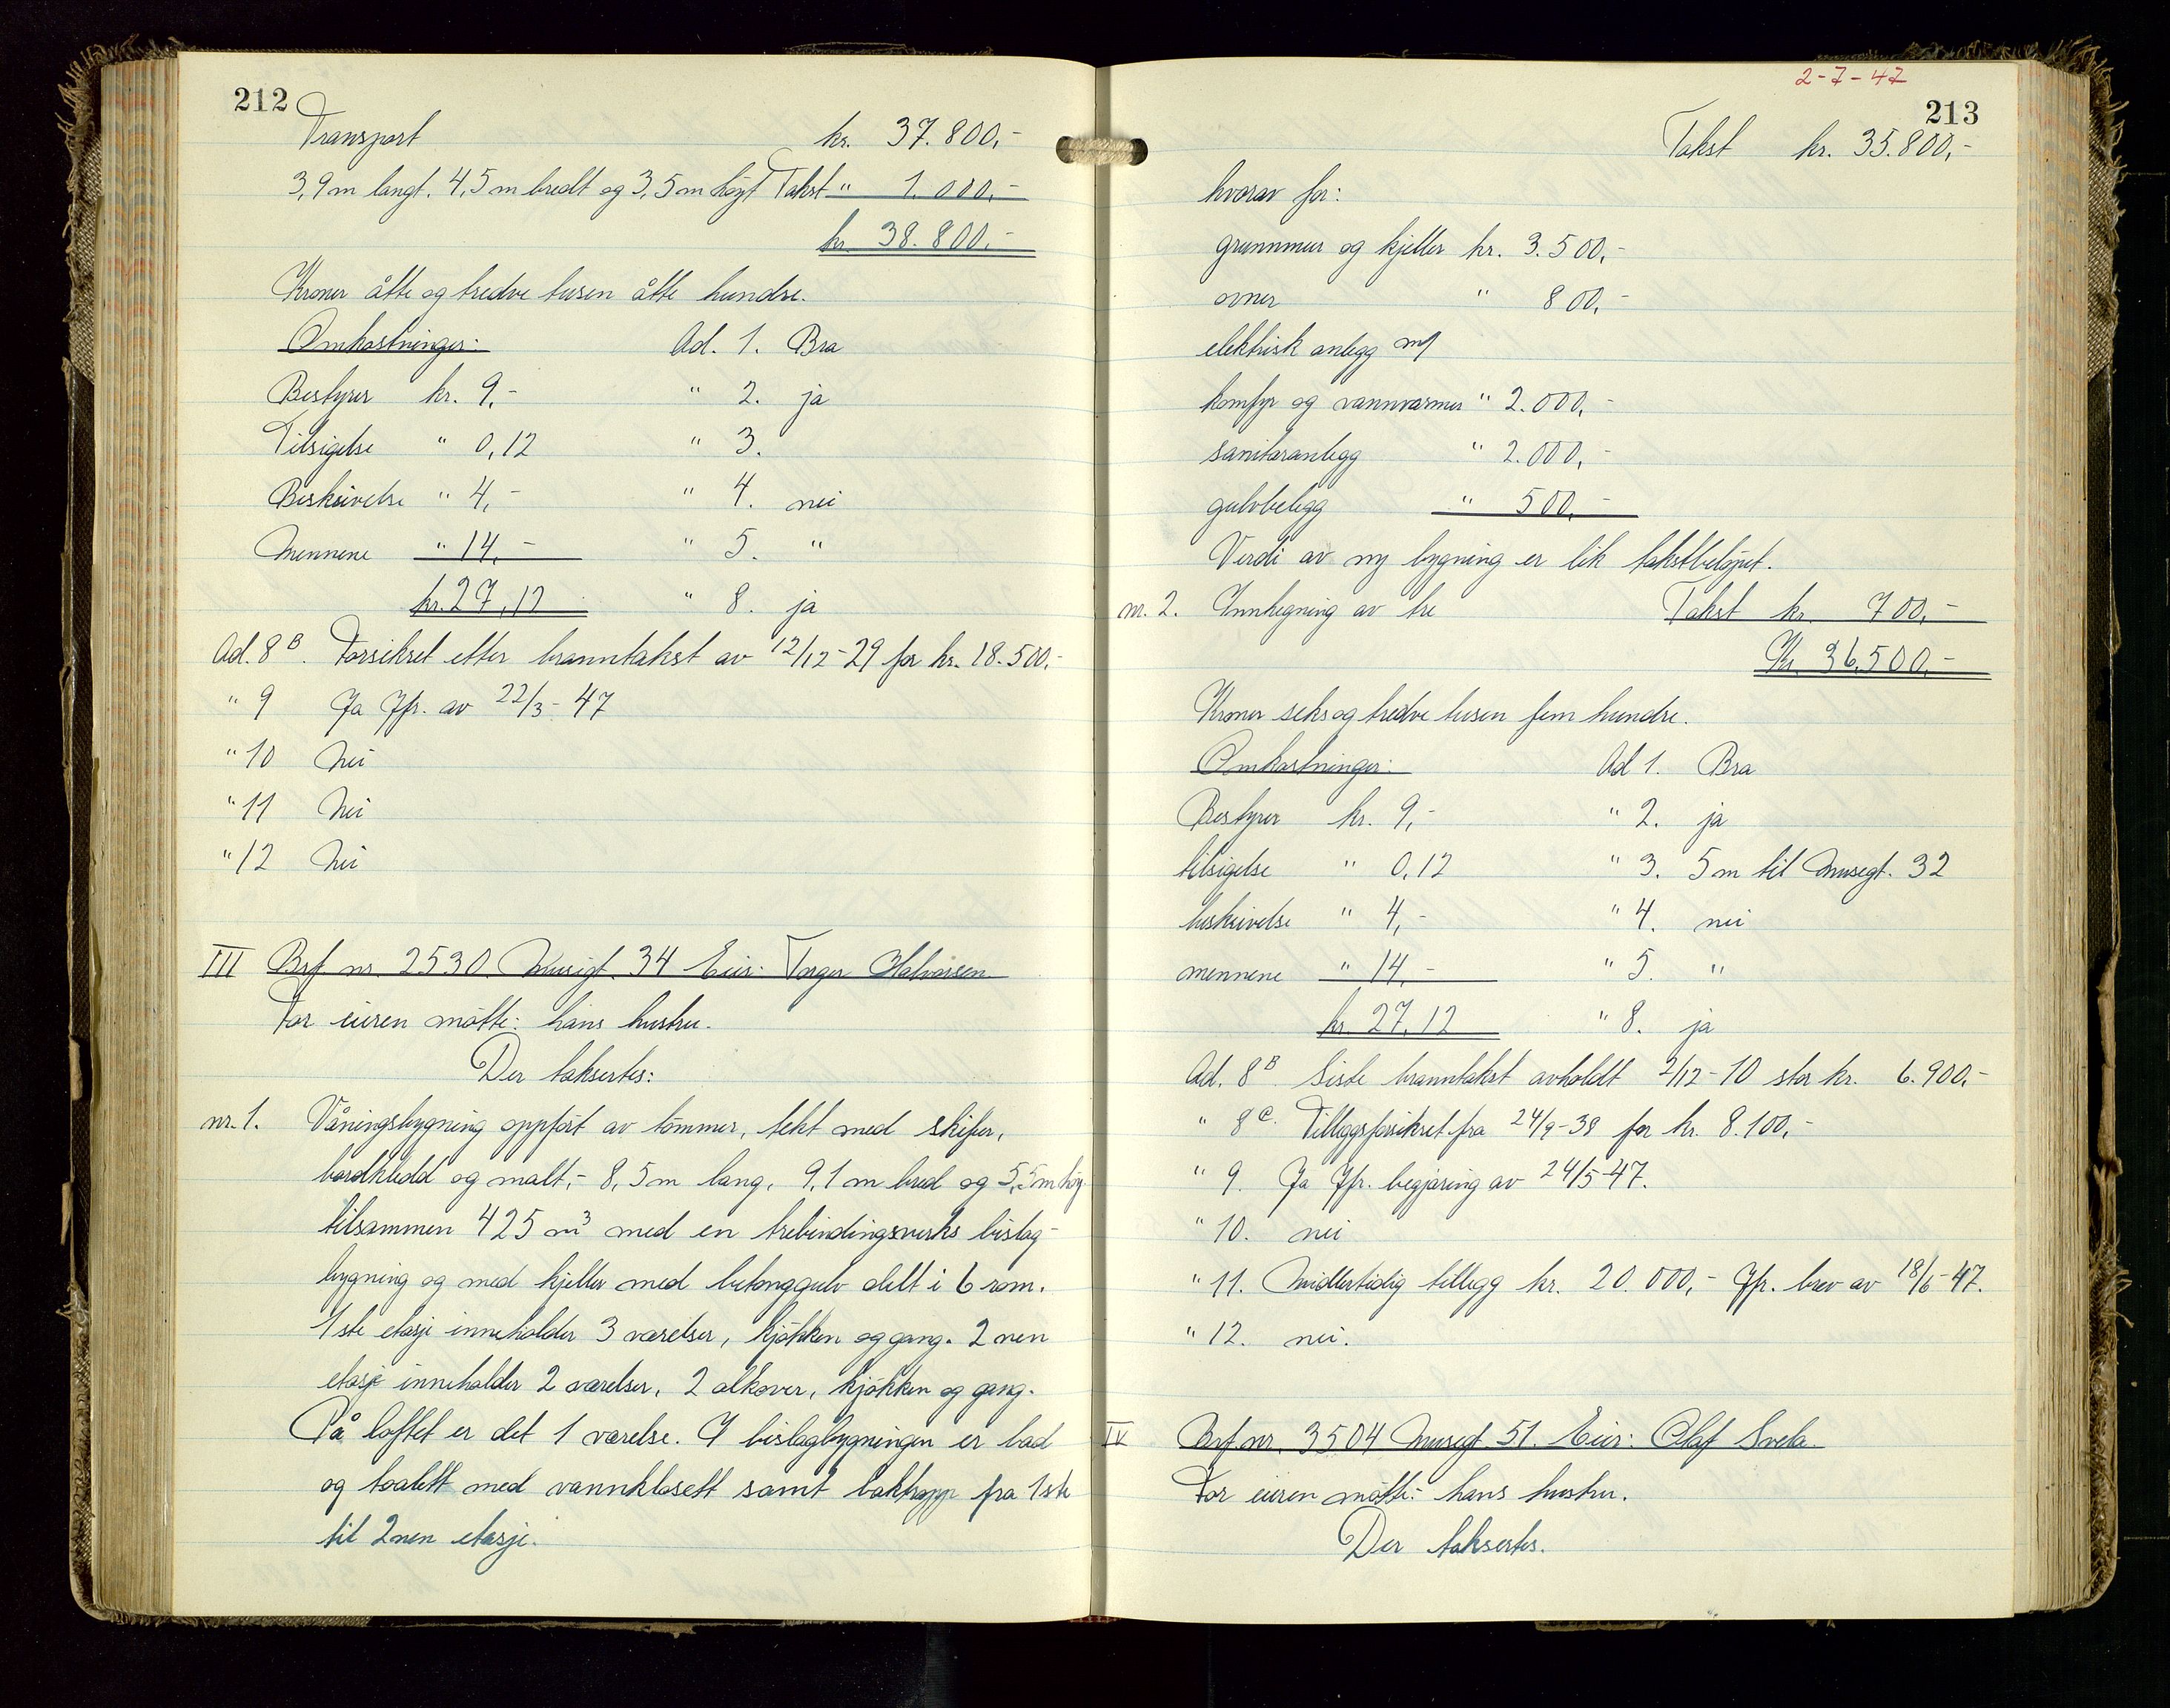 212
Transport kr. 37.800,-
3,9 m langt, 4,5 m bredt og 3,5 m høgt Takst " 1.000,-
kr. 38.800,-
Kroner åtte og tredve tusen åtte hundre.
Omkostninger: Ad. 1. Bra
Bestyrer kr. 9,- " 2. ja
Tilsigelse " 0,12 " 3.
Beskrivelse " 4,- " 4. nei
Mennene " 14,- " 5. "
kr. 27,12 " 8. ja
Ad. 8 B. Forsikret etter branntakst av 12/12-29 for kr. 18.500,-
" 9 Ja Jfr. av 22/3-47
" 10 Nei
" 11 Nei
" 12 Nei
III Brf nr. 2530. Musegt. 34 Eier: Torger Halvorsen
For eieren møtte: hans hustru.
Der taksertes:
nr. 1. Våningsbygning oppført av tømmer, tekt med skifer,
bordkledd og malt,- 8,5 m lang, 9,1 m bred og 5,5 m høy
tilsammen 425 m³ med en trebindingsverks bislag-
bygning og med kjeller med betonggulv delt i 6 rom.
1ste etasje inneholder 3 værelser, kjøkken og gang. 2nen
etasje inneholder 2 værelser, 2 alkover, kjøkken og gang.
På loftet er det 1 værelse. I bislagbygningen er bad
og toalett med vannklosett samt baktrapp fra 1ste
til 2nen etasje.
2-7-47
213
Takst kr. 35.800,-
hvorav for:
grunnmur og kjeller kr. 3.500,-
ovner " 800,-
elektrisk anlegg m/
komfyr og vannvarmer " 2.000,-
sanitæranlegg " 2.000,-
gulvbelegg " 500,-
Verdi av ny bygning er lik takstbeløpet.
nr. 2. Innhegning av tre Takst kr. 700,-
Kr. 36.500,-
Kroner seks og tredve tusen fem hundre.
Omkostninger: Ad 1. Bra
Bestyrer kr. 9,- " 2. ja
tilsigelse " 0,12 " 3. 5 m til Musegt. 32
beskrivelse " 4,- " 4. nei
mennene " 14,- " 5. "
kr. 27,12 " 8. ja
Ad. 8 B. Siste branntakst avholdt 2/12-10 stor kr. 6.900,-
" 8 C. Tilleggsforsikret fra 24/9-38 for kr. 8.100,-
" 9. Ja Jfr. begjæring av 24/5-47.
" 10. nei
" 11. Midlertidig tillegg kr. 20.000,- Jfr. brev av 18/6-47.
" 12. nei.
IV Brf. nr. 3504 Musegt 51. Eier: Olaf Svela.
For eieren møtte: hans hustru.
Der taksertes.